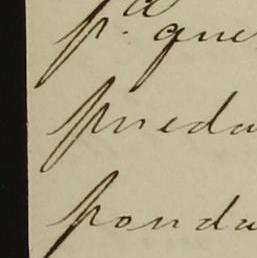 pª que
pueda
ponda